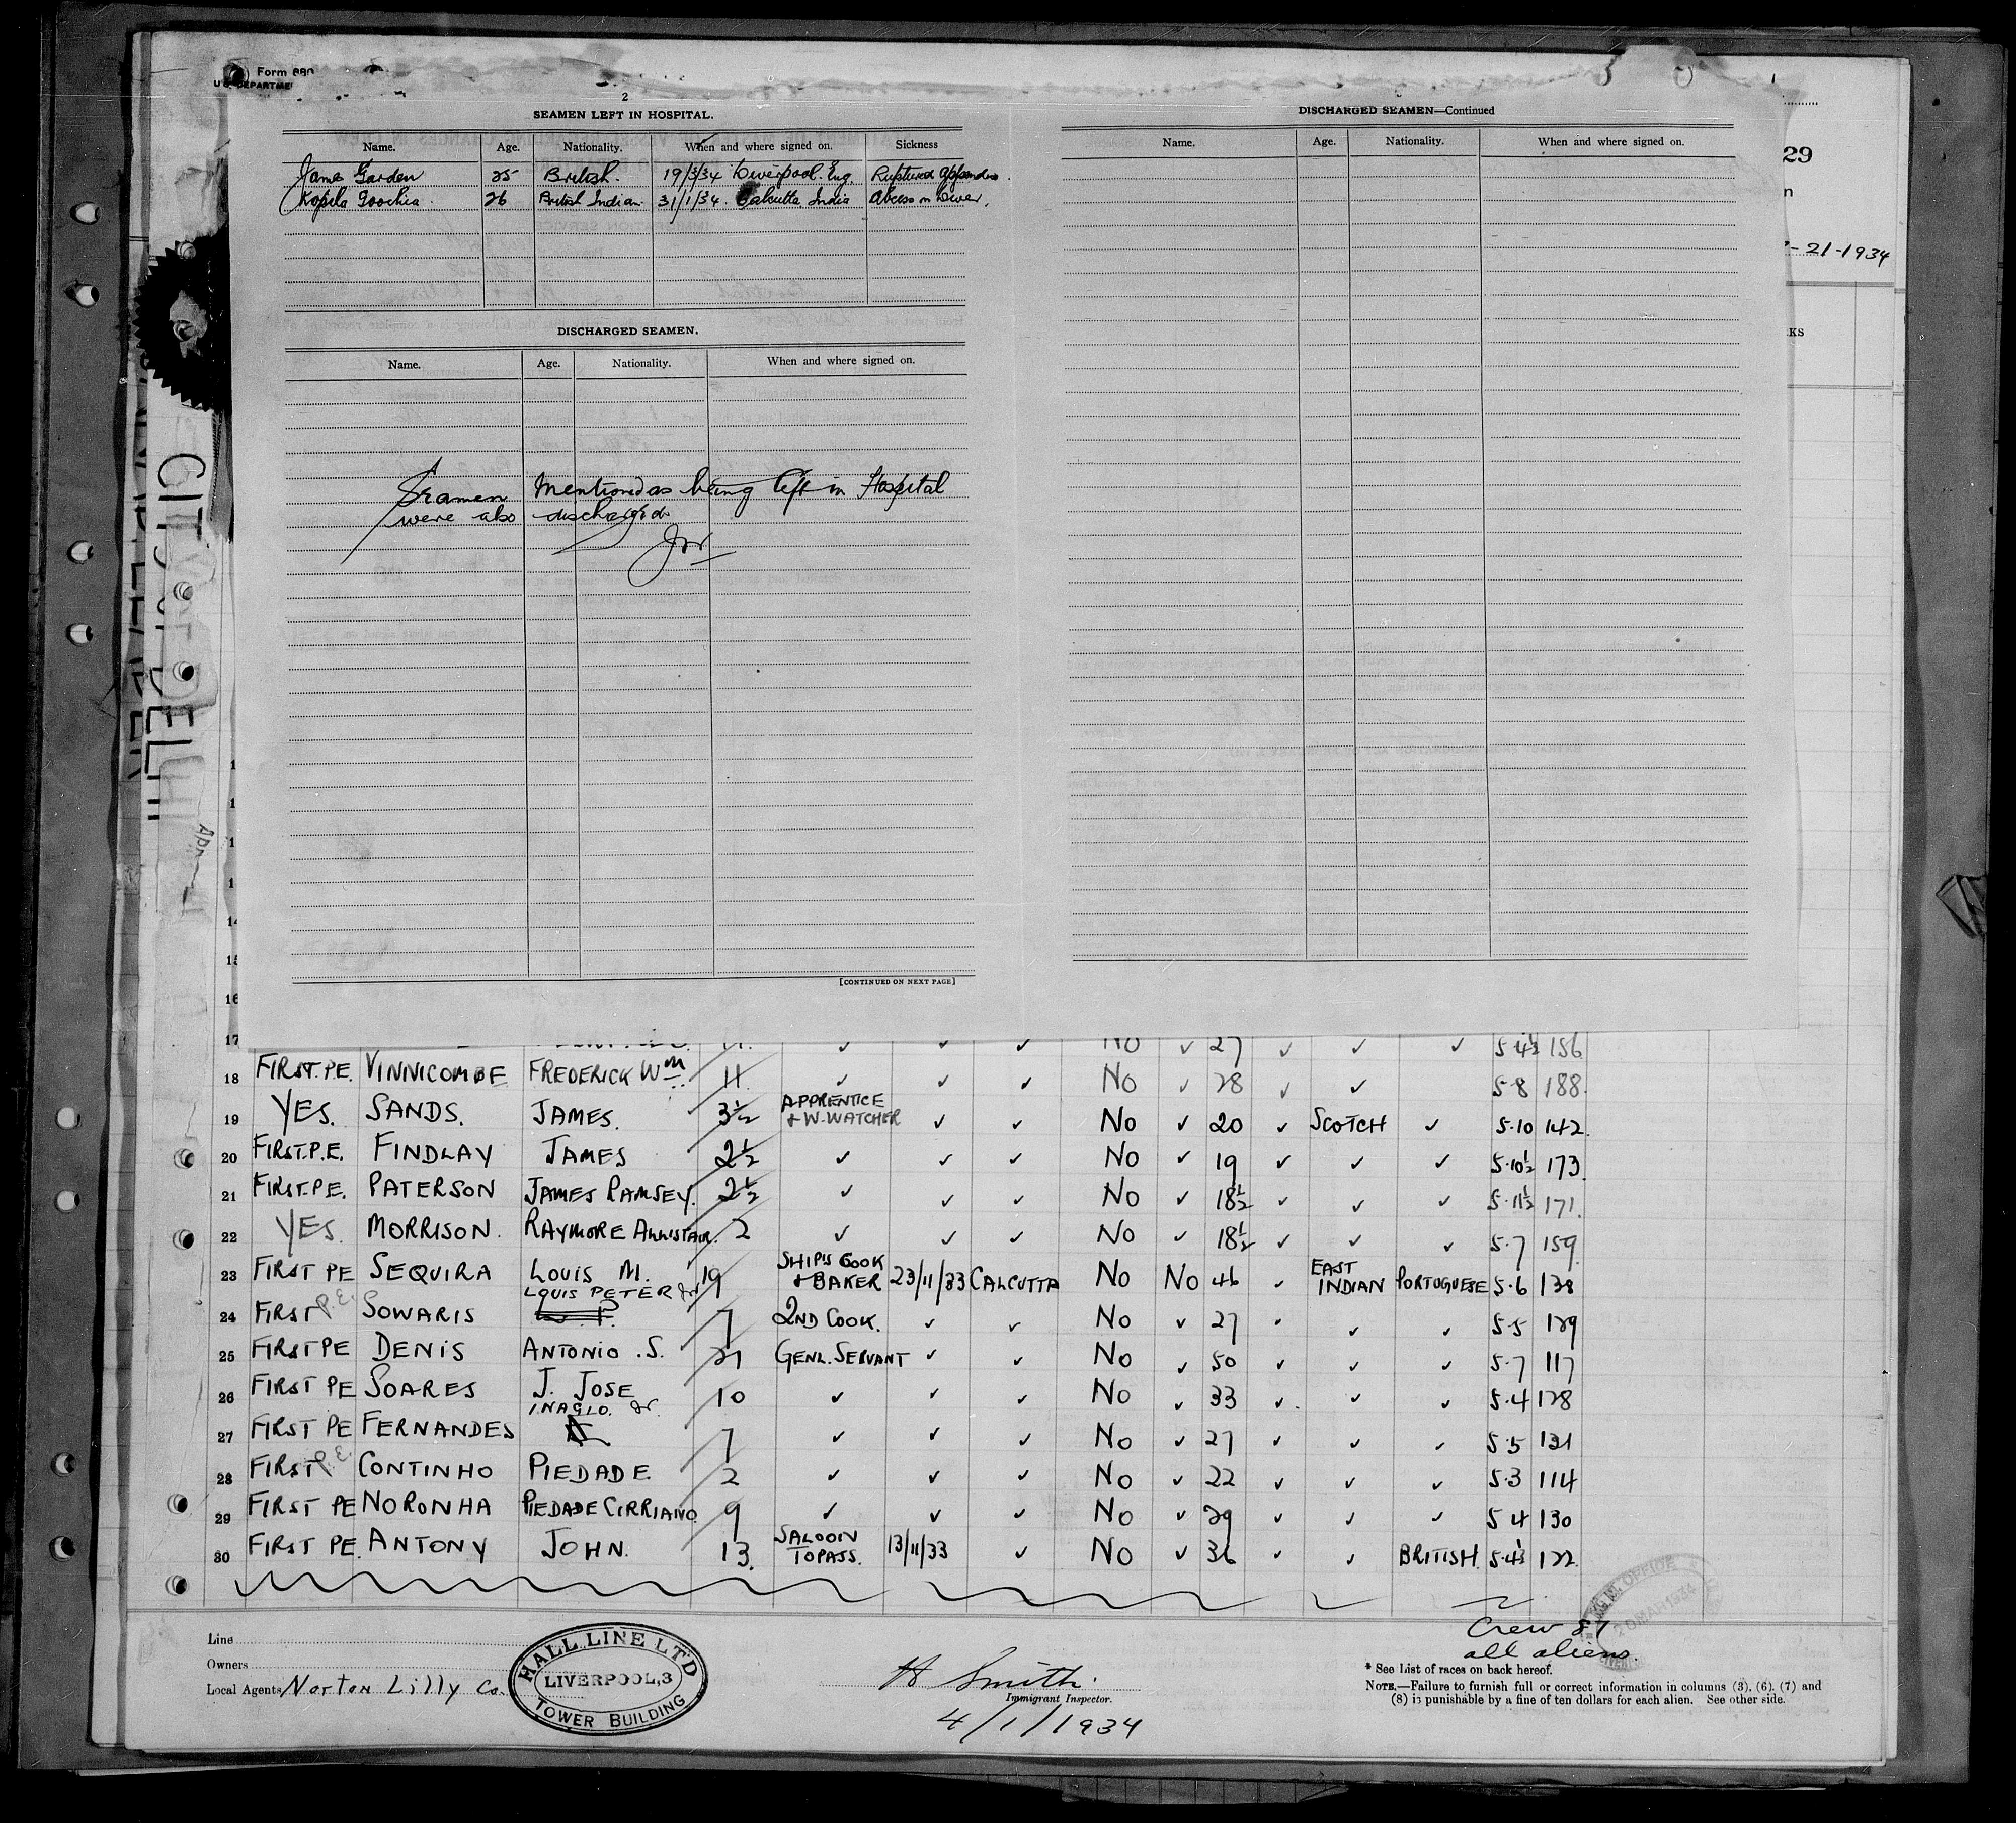 Form 680
U.S. DEPARTME
2
SEAMEN LEFT IN HOSPITAL.
Name. Age. Nationality. When and where signed on. Sickness
James Garden 25 British. 19/3/34 Liverpool. Eng. Ruptured
Kopila Goochia. 26 British Indian. 31/1/34. Calcutta India Abcess on Liver.
DISCHARGED SEAMEN.
Name. Age. Nationality. When and where signed on.
Seamen Mentioned as being left in Hospital
were also discharged
[CONTINUED ON NEXT PAGE]
DISCHARGED SEAMEN—Continued
Name. Age. Nationality. When and where signed on.
29
n
-21-1934
KS
CITY OF DELHI
14
15
16
17 No ✓ 27 ✓ ✓ ✓ 5·4½ 156
18 FIRST.P.E. VINNICOMBE FREDERICK Wm 11 ✓ ✓ ✓ No ✓ 28 ✓ ✓ 5·8 188
19 YES. SANDS. JAMES. 3½ APPRENTICE + W. WATCHER ✓ ✓ No ✓ 20 ✓ SCOTCH ✓ 5·10 142
20 FIRST.P.E. FINDLAY JAMES 2½ ✓ ✓ ✓ No ✓ 19 ✓ ✓ ✓ 5·10½ 173
21 FIRST.P.E. PATERSON JAMES RAMSEY. 2½ ✓ ✓ ✓ No ✓ 18½ ✓ ✓ ✓ 5·11½ 171.
22 YES. MORRISON. RAYMORE ALLISTAIR. 2 ✓ ✓ ✓ No ✓ 18½ ✓ ✓ ✓ 5·7 159
23 FIRST PE SEQUIRA LOUIS M. 19 SHIP'S COOK + BAKER 23/11/33 CALCUTTA No No 46 ✓ EAST INDIAN PORTUGUESE 5·6 138
24 FIRST P.E. SOWARIS LOUIS PETER 7 2ND COOK. ✓ ✓ No ✓ 27 ✓ ✓ ✓ 5·5 129
25 FIRST PE DENIS ANTONIO .S. 21 GENL. SERVANT ✓ ✓ No ✓ 50 ✓ ✓ ✓ 5·7 117
26 FIRST PE SOARES J. JOSE 10 ✓ ✓ ✓ No ✓ 33 ✓ ✓ ✓ 5·4 128
27 FIRST PE FERNANDES INAGIO. 7 ✓ ✓ ✓ No ✓ 27 ✓ ✓ ✓ 5·5 131
28 FIRST P.E. CONTINHO PIEDADE. 2 ✓ ✓ ✓ No ✓ 22 ✓ ✓ ✓ 5·3 114
29 FIRST PE NORONHA PIEDADE CIRRIANO 9 ✓ ✓ ✓ No ✓ 29 ✓ ✓ ✓ 5 4 130
30 FIRST PE. ANTONY JOHN. 13. SALOON TOPASS. 13/11/33 ✓ No ✓ 36 ✓ ✓ BRITISH. 5·4½ 122
Line
Owners
Local Agents Norton Lilly Co.
HALL LINE LTD
LIVERPOOL,3
TOWER BUILDING
H Smith.
Immigrant Inspector.
4/1/1934
OFFICE
20 MAR 1934
Crew 87
all aliens.
* See List of races on back hereof.
NOTE.—Failure to furnish full or correct information in columns (3), (6), (7) and
(8) is punishable by a fine of ten dollars for each alien. See other side.